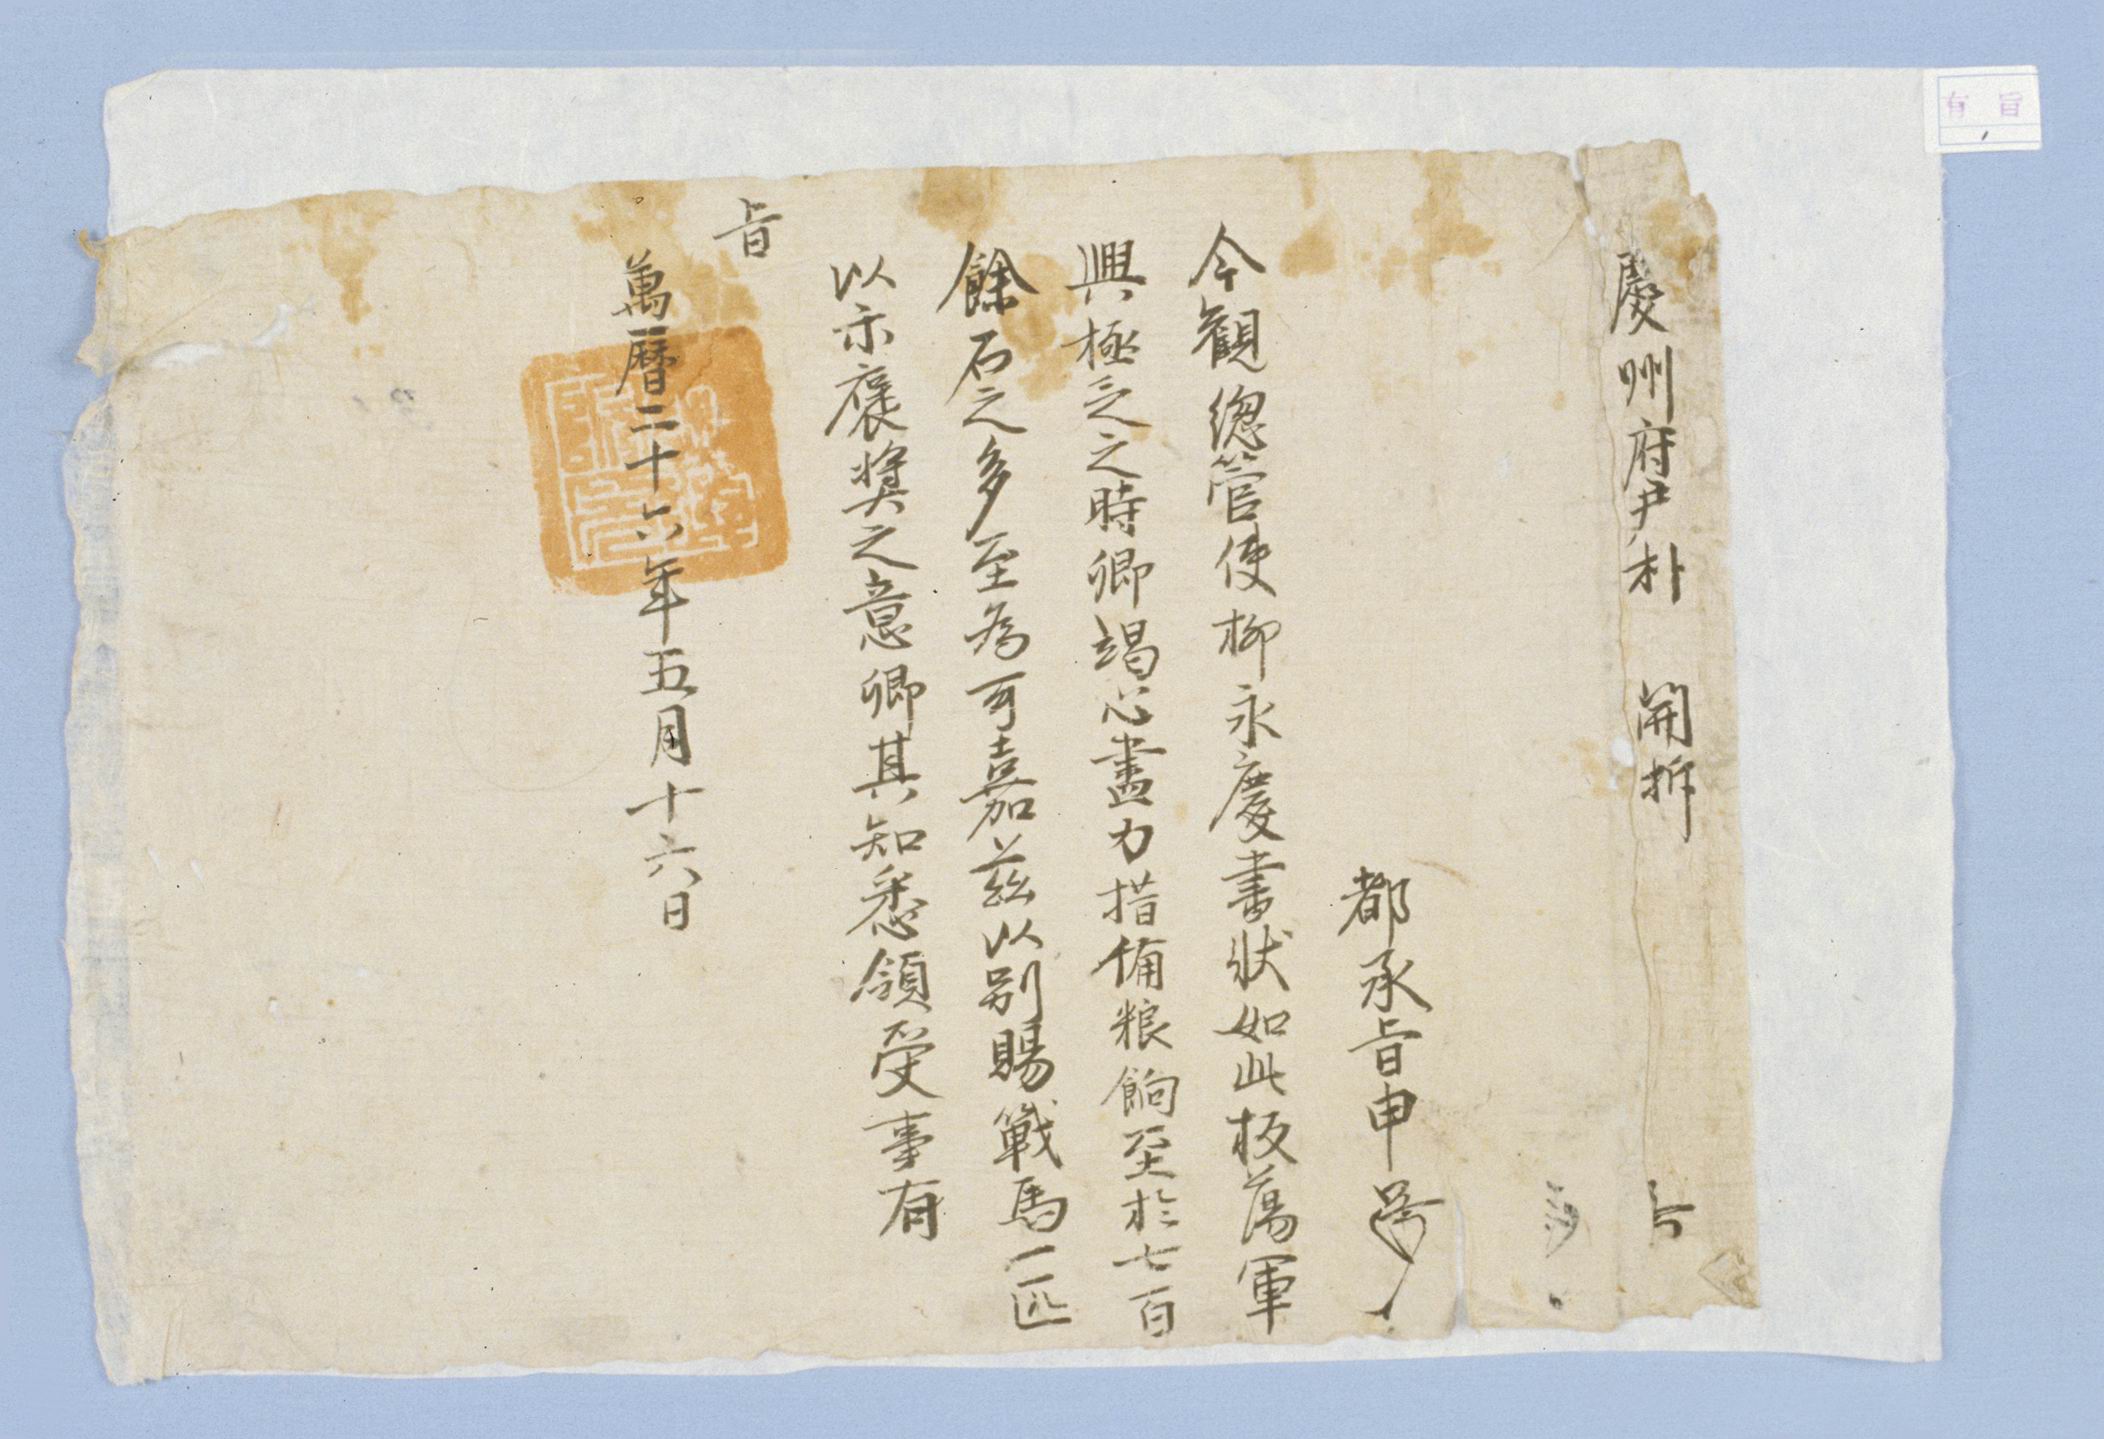 慶州府尹朴 開拆
都承旨申
今觀總管使柳永慶書狀如此板蕩軍
興極乏之時卿竭心盡力措備粮餉至於七百
餘石之多至為可嘉茲以別賜戰馬一匹
以示褒奬之意卿其知悉領受事有
旨
萬曆二十六年五月十六日
有旨